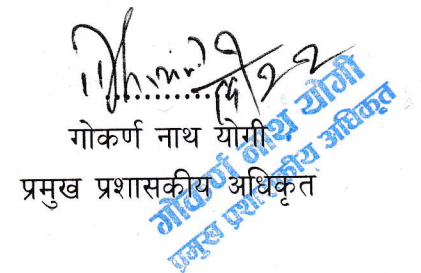 गोकर्ण नाथ योगी
प्रमुख प्रशासकीय अधिकृत
गोकर्ण नाथ योगी
प्रमुख प्रशासकीय अधिकृत